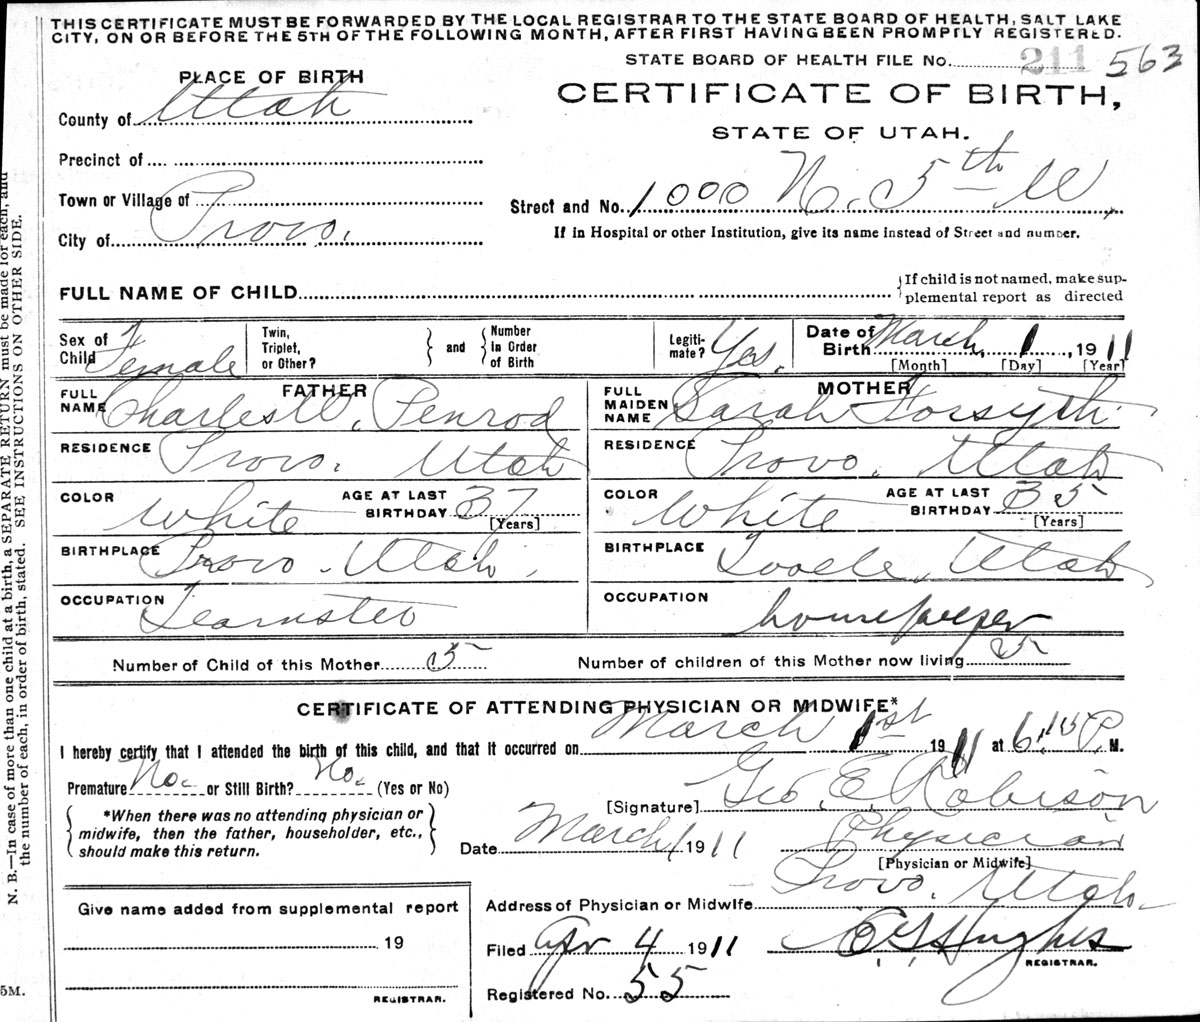 THIS CERTIFICATE MUST BE FORWARDED BY THE LOCAL REGISTRAR TO THE STATE BOARD OF HEALTH, SALT LAKE
CITY, ON OR BEFORE THE 5TH OF THE FOLLOWING MONTH, AFTER FIRST HAVING BEEN PROMPTLY REGISTERED.
STATE BOARD OF HEALTH FILE No. 211 563
PLACE OF BIRTH
CERTIFICATE OF BIRTH,
County of Utah
STATE OF UTAH.
Precinct of
Town or Village of
Street and No. 1000 N. 5th W.
City of Provo.
If in Hospital or other Institution, give its name instead of Street and number.
FULL NAME OF CHILD
If child is not named, make sup-
plemental report as directed
Sex of Child Female
Twin, Triplet, or Other?
and
Number in Order of Birth
Legiti-mate? Yes.
Date of Birth March 1, 1911
[Month] [Day] [Year]
FATHER
FULL NAME Charles W. Penrod
MOTHER
FULL MAIDEN NAME Sarah Forsyth
RESIDENCE Provo. Utah
RESIDENCE Provo. Utah
COLOR White AGE AT LAST BIRTHDAY 37 [Years]
COLOR White AGE AT LAST BIRTHDAY 35 [Years]
BIRTHPLACE Provo. Utah.
BIRTHPLACE Tooele, Utah
OCCUPATION Teamster
OCCUPATION housekeeper
Number of Child of this Mother 5
Number of children of this Mother now living 5
CERTIFICATE OF ATTENDING PHYSICIAN OR MIDWIFE*
I hereby certify that I attended the birth of this child, and that it occurred on March 1st 1911 at 6:10 P. M.
Premature No. or Still Birth? No. (Yes or No)
[Signature] Geo. E. Robison
*When there was no attending physician or
midwife, then the father, householder, etc.,
should make this return.
Date March 1 1911
Physician
[Physician or Midwife]
Address of Physician or Midwife Provo. Utah.
Give name added from supplemental report
19
REGISTRAR.
Filed Apr 4 1911
Hughes
REGISTRAR.
Registered No. 55
5M.
N. B.—In case of more than one child at a birth, a SEPARATE RETURN must be made for each, and
the number of each, in order of birth, stated. SEE INSTRUCTIONS ON OTHER SIDE.